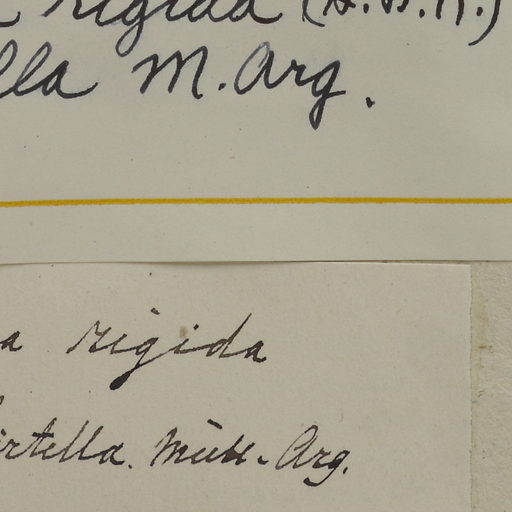 rigida (H.B.K.)
lla M. Arg.
a rigida
irtella. Müll-Arg.